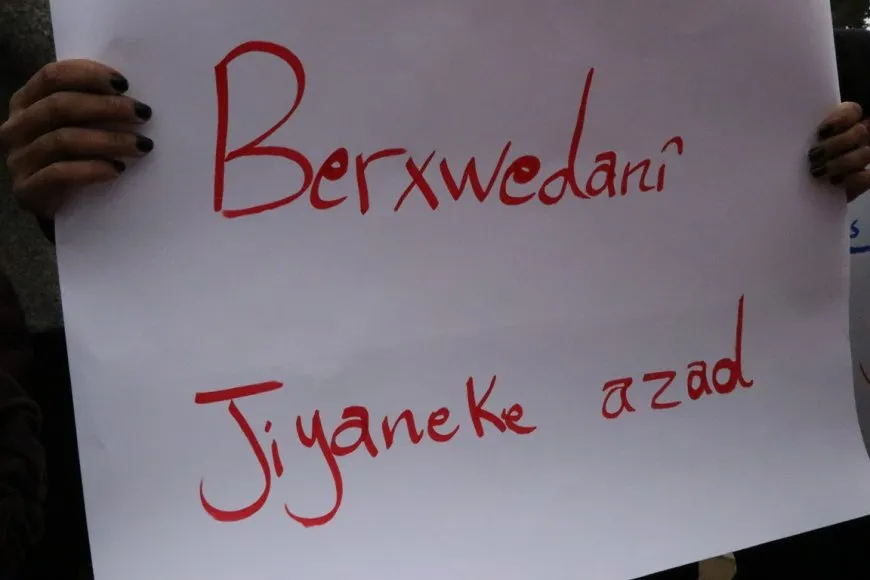 Berxwedanî
Jiyaneke azad
s